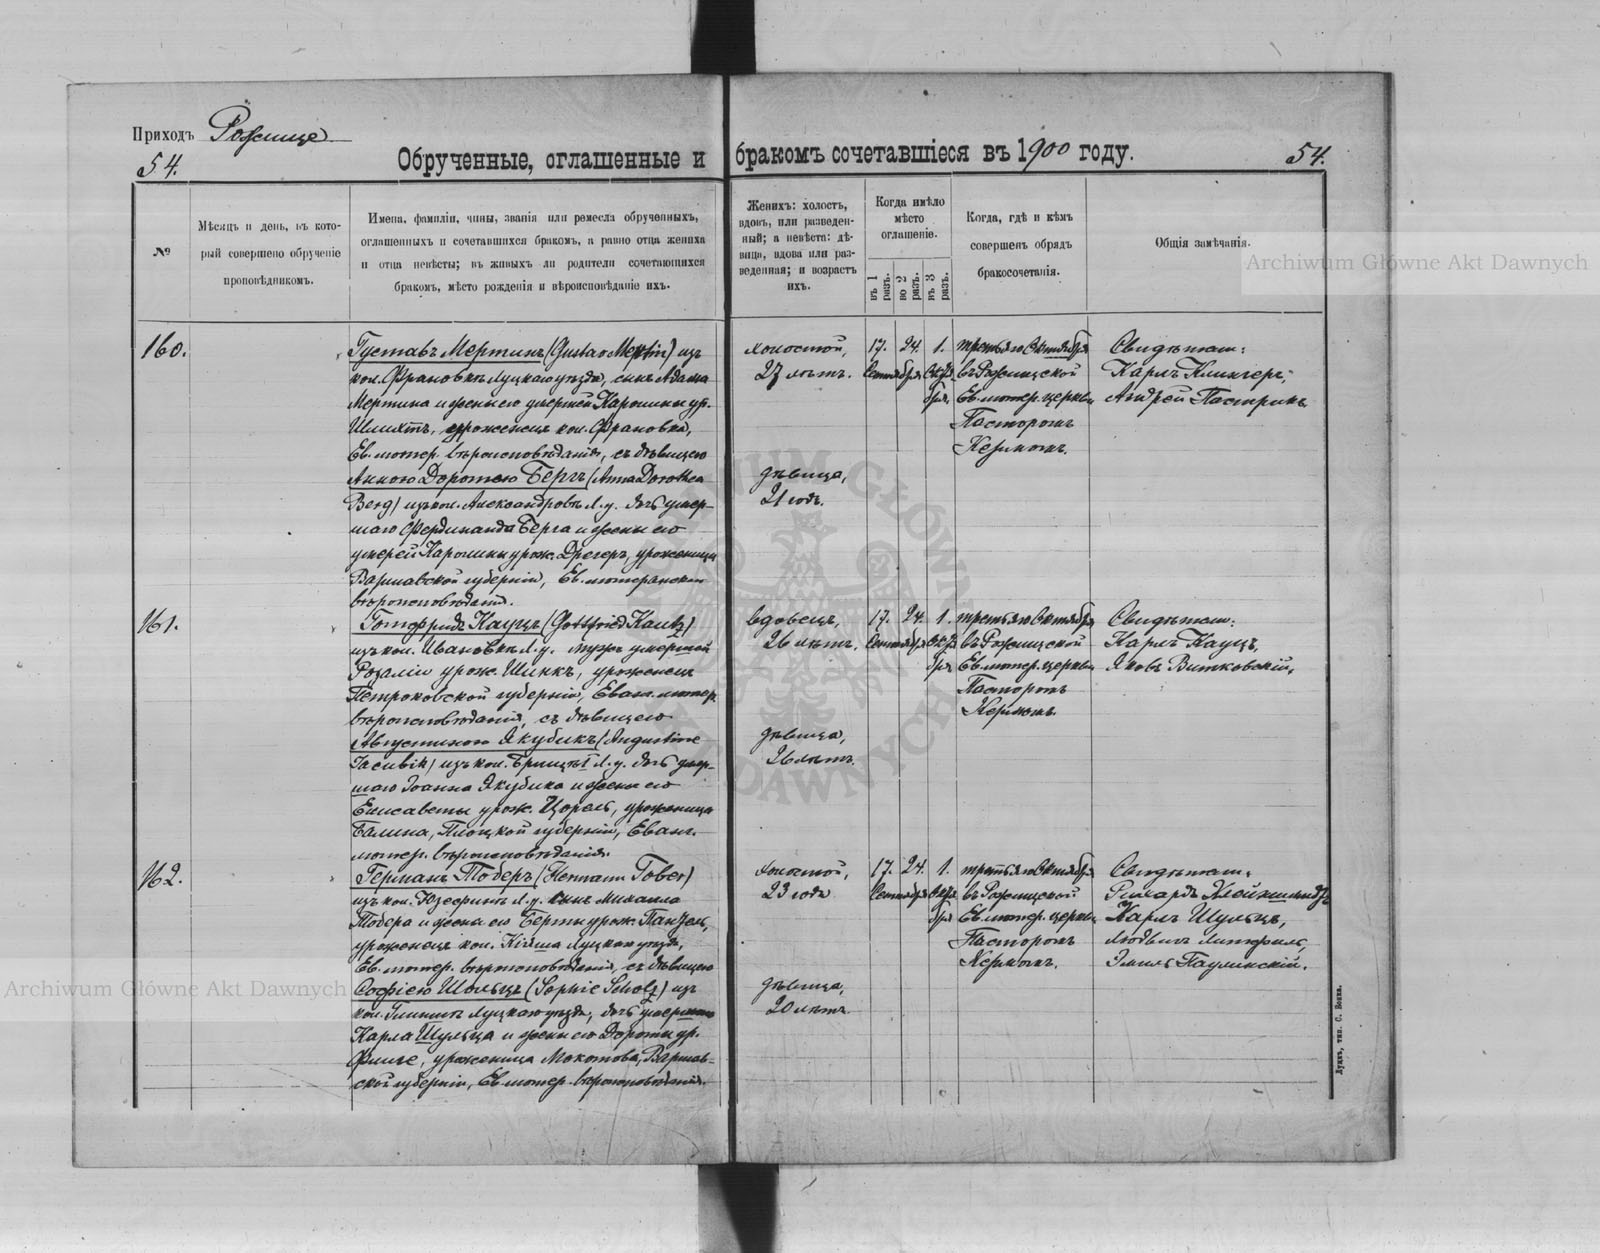 Приходъ Рожище
54.
Обрученные, оглашенные и бракомъ сочетавшіеся въ 1900 году.
54.
№
Мѣсяцъ и день, въ кото-
рый совершено обрученіе
проповѣдникомъ.
Имена, фамиліи, чины, званія или ремесла обрученныхъ,
оглашенныхъ и сочетавшихся бракомъ, а равно отца жениха
и отца невѣсты; въ живыхъ ли родители сочетающихся
бракомъ, мѣсто рожденія и вѣроисповѣданіе ихъ.
Женихъ: холостъ,
вдовъ, или разведен-
ный; а невѣста: дѣ-
вица, вдова или раз-
веденная; и возрастъ
ихъ.
Когда имѣло
мѣсто
оглашеніе.
въ 1 разъ.
во 2 разъ.
въ 3 разъ.
Когда, гдѣ и кѣмъ
совершенъ обрядъ
бракосочетанія.
Общія замѣчанія.
160.
Густавъ Мертинъ (Gustav Mertin) изъ
кол. Франовка Луцкаго уѣзда, сынъ Адама
Мертина и жены его умершей Каролины ур.
Шлихтъ, уроженецъ кол. Франовка,
Ев. лютер. вѣроисповѣданія, съ дѣвицею
Анною Доротею Бергъ (Anna Dorothea
Berg) изъ кол. Александровка Л. у. дочь умер-
шаго Фердинанда Берга и жены его
умерей Каролины урож. Дрегеръ, уроженица
Варшавской губерніи, Ев. лютеранскаго
вѣроисповѣданія.
холостой,
27 лѣтъ.
дѣвица,
21 годъ.
17. 24. 1.
Сентября Октя-
бря.
третьяго Октября
въ Рожищской
Ев. лютер. церкви
Пасторомъ
Кермомъ.
Свидѣтели:
Карлъ Клингеръ,
Андрей Пастрикъ.
161.
Готфридъ Кауцъ (Gottfried Kautz)
изъ кол. Ивановка Л. у. мужъ умершей
Розаліи урож. Шинкъ, уроженецъ
Петроковской губерніи, Еванг. лютер.
вѣроисповѣданія, съ дѣвицею
Августиною Якубикъ (Augustine
Jacubik) изъ кол. Брищи I Л. у. дочь умер-
шаго Іоанна Якубика и жены его
Елисаветы урож. Цорель, уроженица
Балина, Плоцкой губерніи, Еванг.
лютер. вѣроисповѣданія.
вдовецъ,
26 лѣтъ.
дѣвица,
26 лѣтъ.
17. 24. 1.
Сентября Октя-
бря
третьяго Октября
въ Рожищской
Ев. лютер. церкви
Пасторомъ
Кермомъ.
Свидѣтели:
Карлъ Кауцъ,
Яковъ Витковскій.
162.
Германъ Тоберъ (Hermann Tober)
изъ кол. Юзефинъ Л. у. сынъ Михаила
Тобера и жены его Берты урож. Панзель,
уроженецъ кол. Луцкаго уѣзда,
Ев. лютер. вѣроисповѣданія, съ дѣвицею
Софіею Шольцъ (Sophie Scholz) изъ
кол. Глинищъ Луцкаго уѣзда, дочь умершаго
Карла Шульца и жены его Дороты ур.
уроженица Мокотова, Варшав-
ской губерніи, Ев. лютер. вѣроисповѣданія.
холостой,
23 года
дѣвица,
20 лѣтъ.
17. 24. 1.
Сентября Октя-
бря
третьяго Октября
въ Рожищской
Ев. лютер. церкви
Пасторомъ
Кермомъ.
Свидѣтели:
Рихардъ
Карлъ Шульцъ,
Людвигъ
Эмиль Паулинскій.
Луцкъ, тип. С. Бонка.
Archiwum Główne Akt Dawnych
Archiwum Główne Akt Dawnych